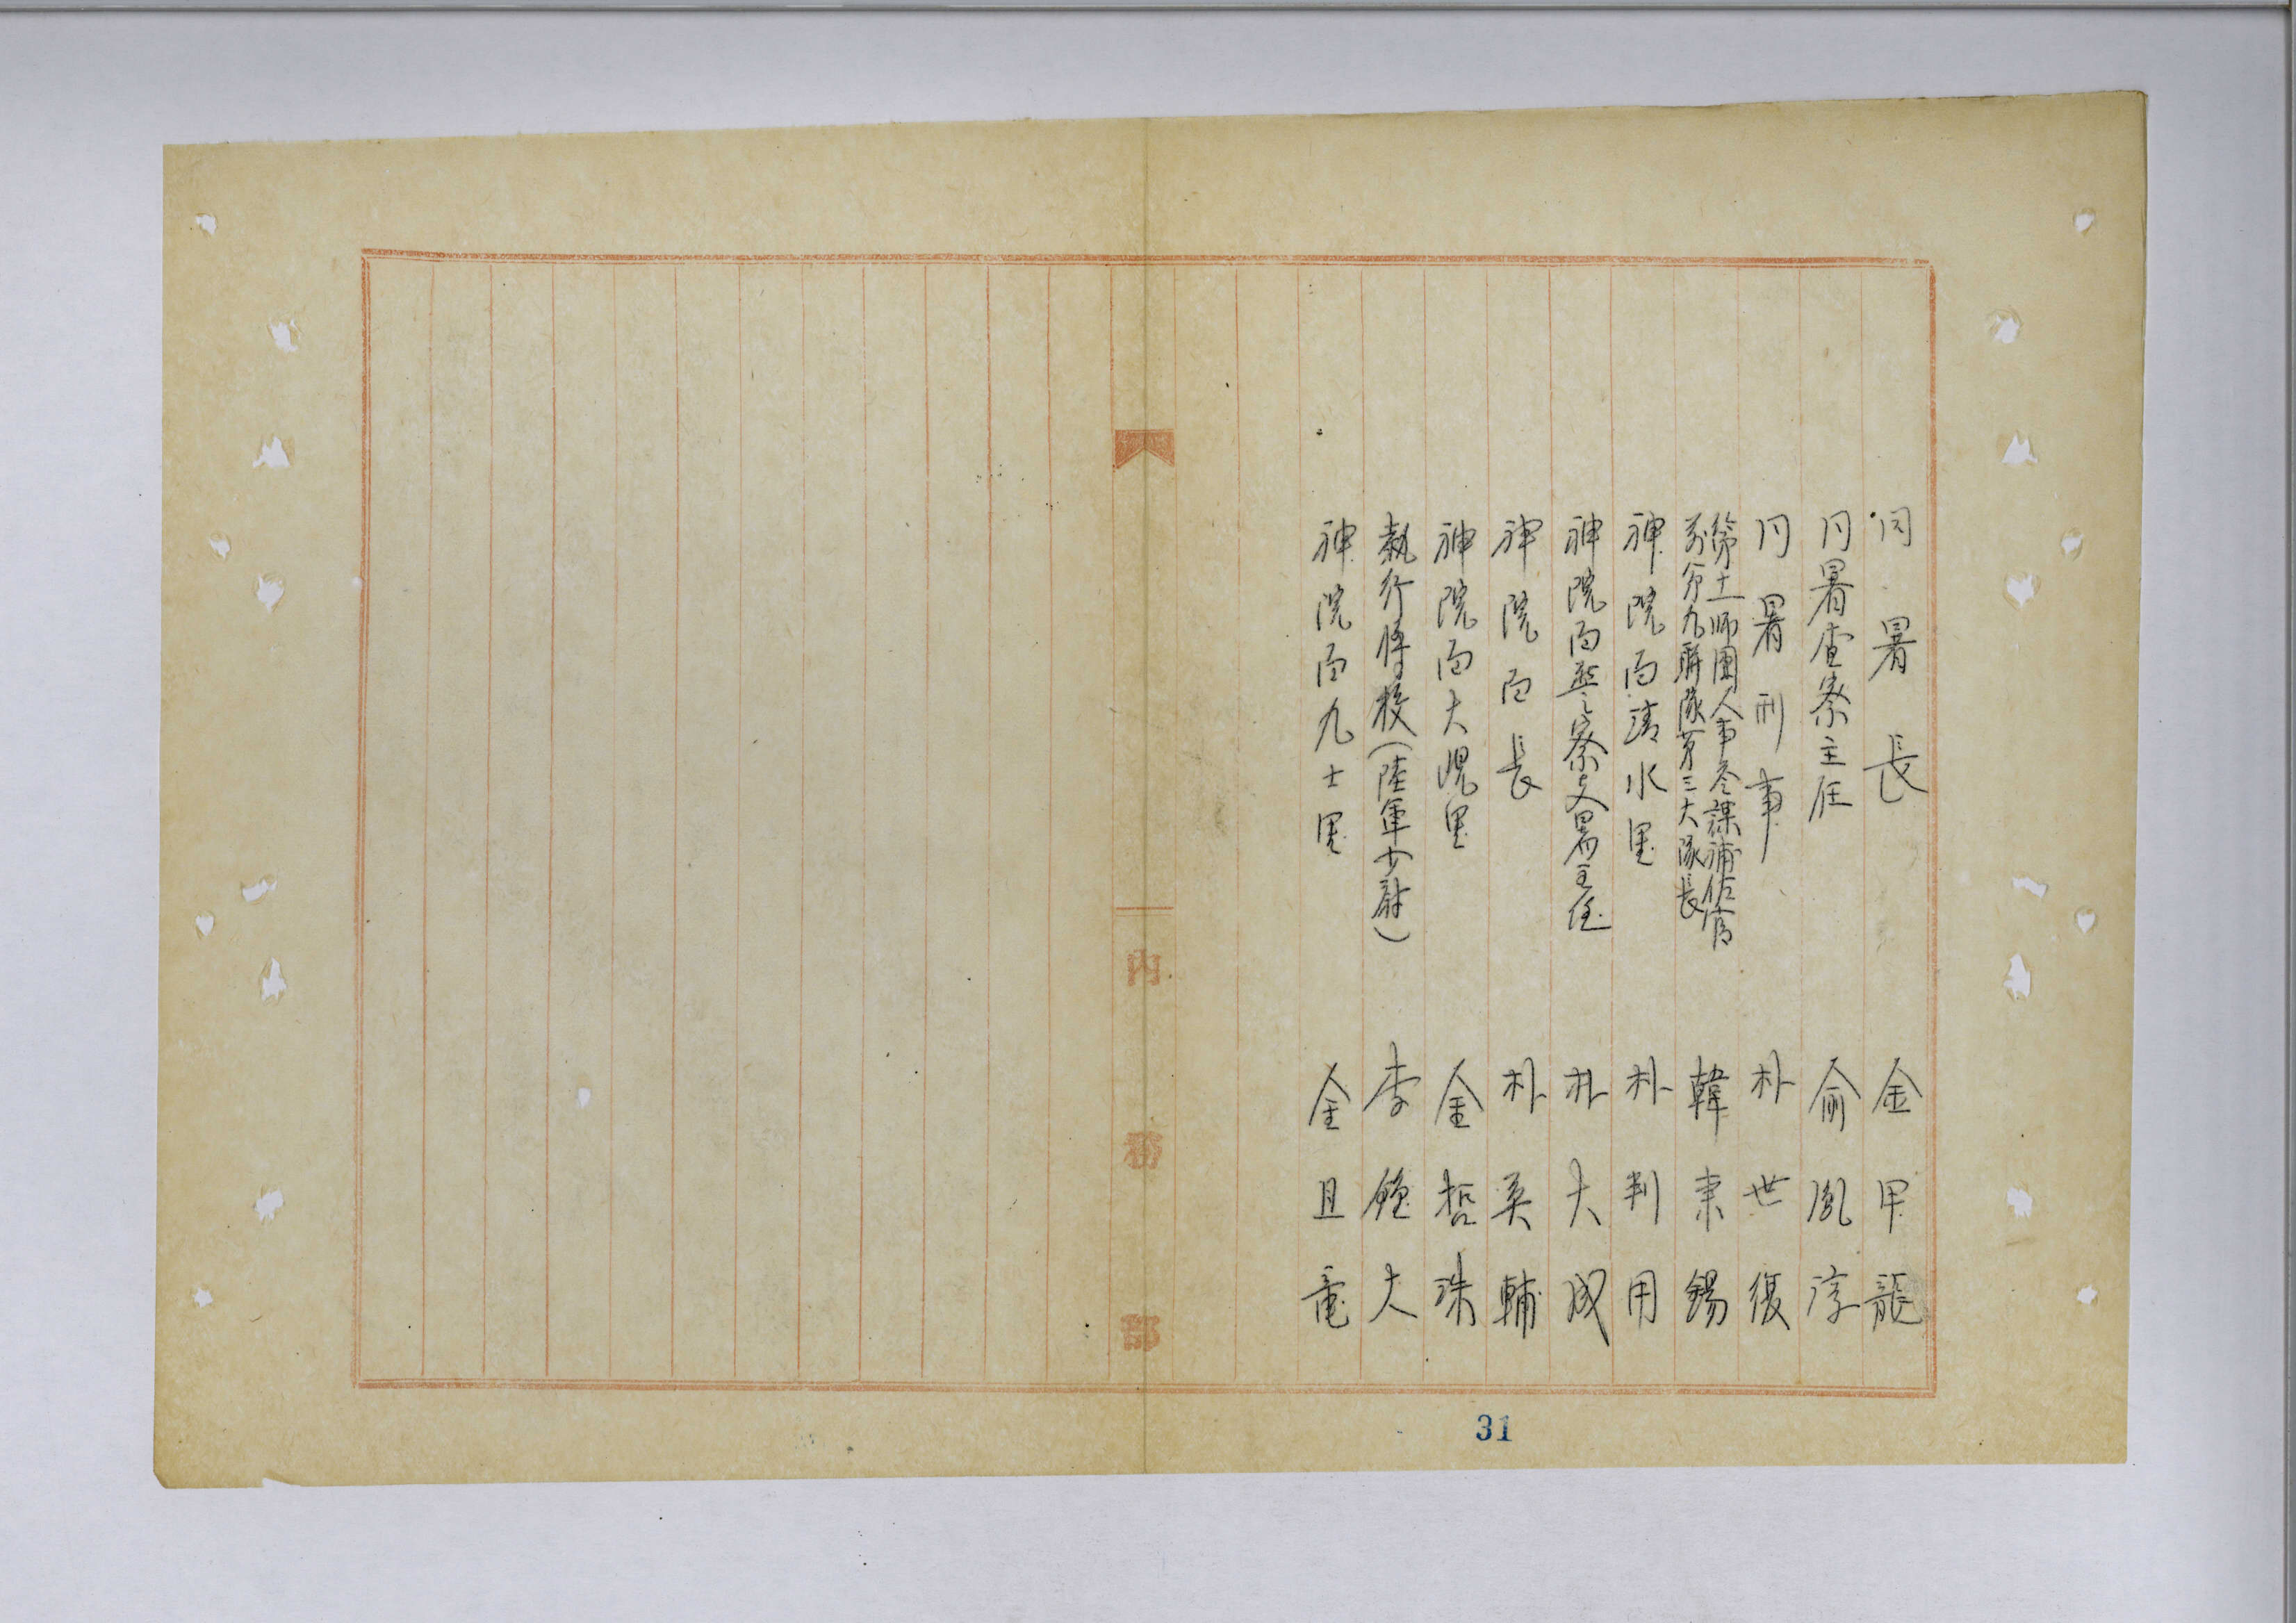 同 署 長 金 甲 龍
同署査察主任 俞 胤 淳
同 署 刑 事 朴 世 復
第十一師團人事參謀補佐官
前第九聯隊第三大隊長 韓 東 錫
神院面清水里 朴 判 用
神院面警察支署主任 朴 大 成
神院面長 朴 英 輔
神院面大峴里 金 哲 洙
執行將校(陸軍少尉) 李 鍾 大
神院面九士里 金 且 竜
內務部
31